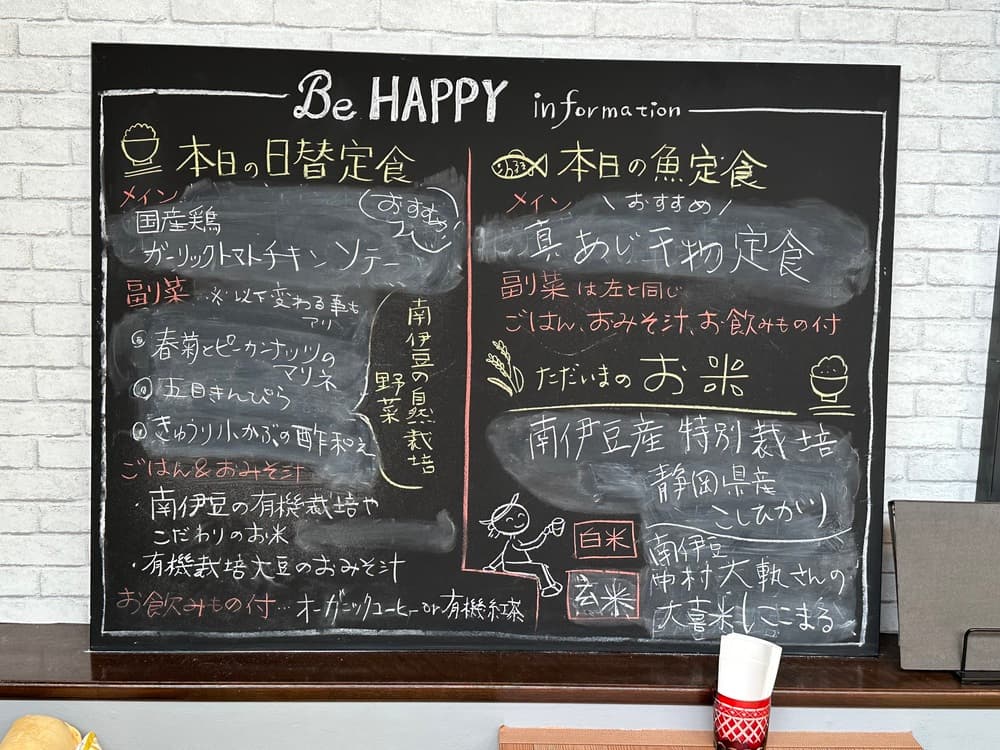 Be HAPPY information
本日の日替定食
メイン
おすすめ
国産鶏
ガーリックトマトチキンソテー
副菜 ※以下変わる事も
アリ
春菊とピーカンナッツの
マリネ
五目きんぴら
きゅうり小かぶの酢和え
南伊豆の自然栽培
野菜
ごはん&おみそ汁
・南伊豆の有機栽培や
こだわりのお米
・有機栽培大豆のおみそ汁
お飲みもの付…オーガニックコーヒーor有機紅茶
本日の魚定食
メイン \おすすめ/
真あじ干物定食
副菜は左と同じ
ごはん、おみそ汁、お飲みもの付
ただいまの お米
南伊豆産 特別栽培
静岡県産
こしひかり
白米
玄米
南伊豆
中村大軌さんの
大喜米にこまる